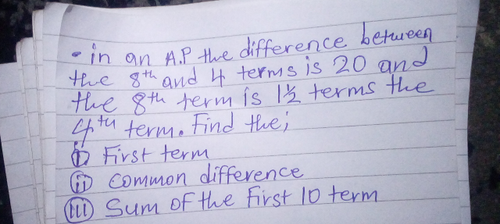 - in an A.P the difference between
the 8th and 4 terms is 20 and
the 8th term is 1½ terms the
4th term. Find the;
(i) First term
(ii) Common difference
(iii) Sum of the First 10 term